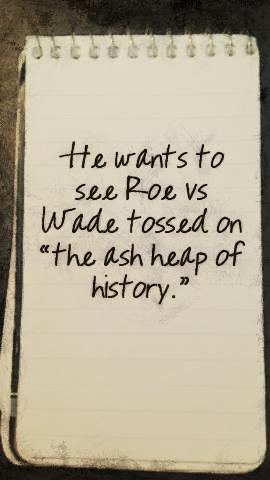 He wants to
see Roe vs
Wade tossed on
“the ash heap of
history.”